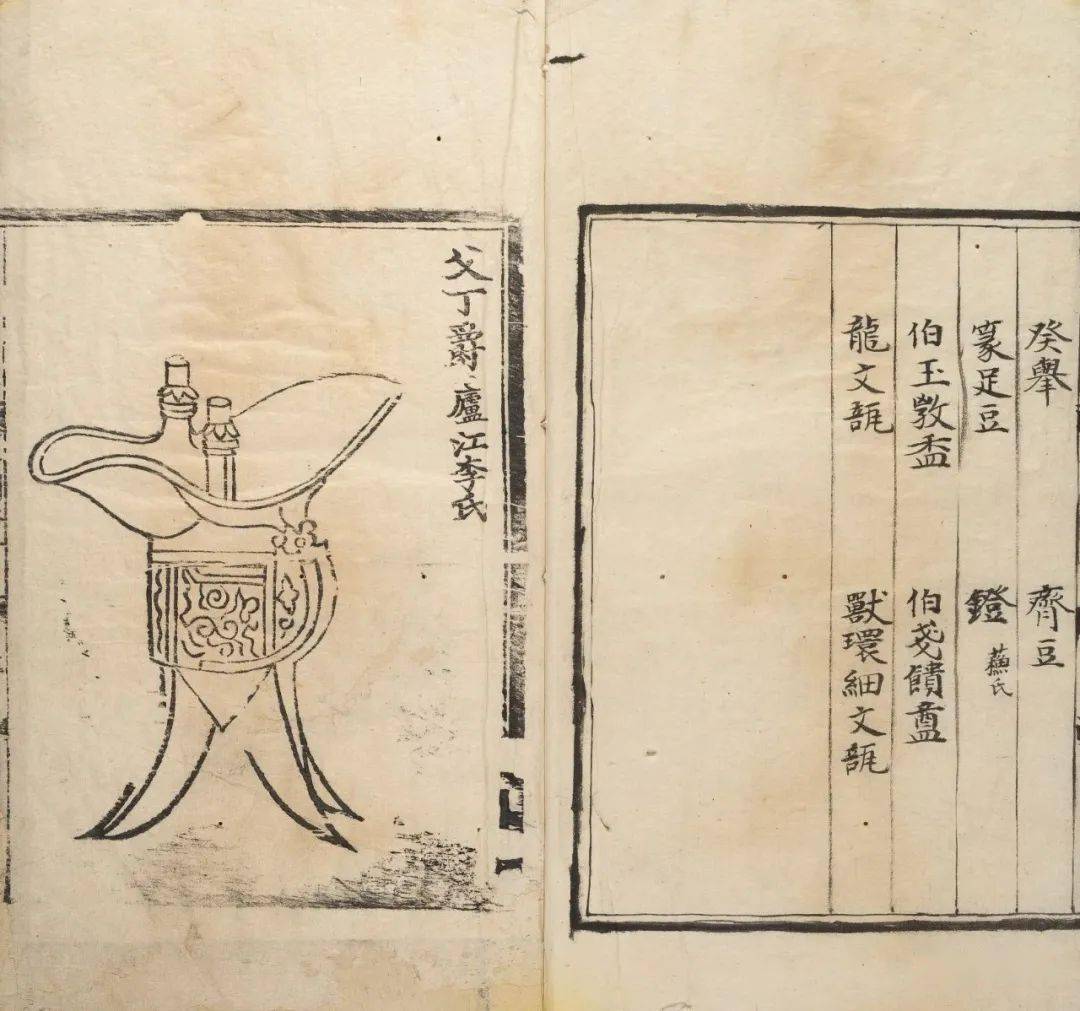 癸舉 齊豆
篆足豆 鐙 蘓氏
伯玉敦盉 伯戔饋盦
龍文瓿 獸環細文瓿
父丁爵 廬江李氏